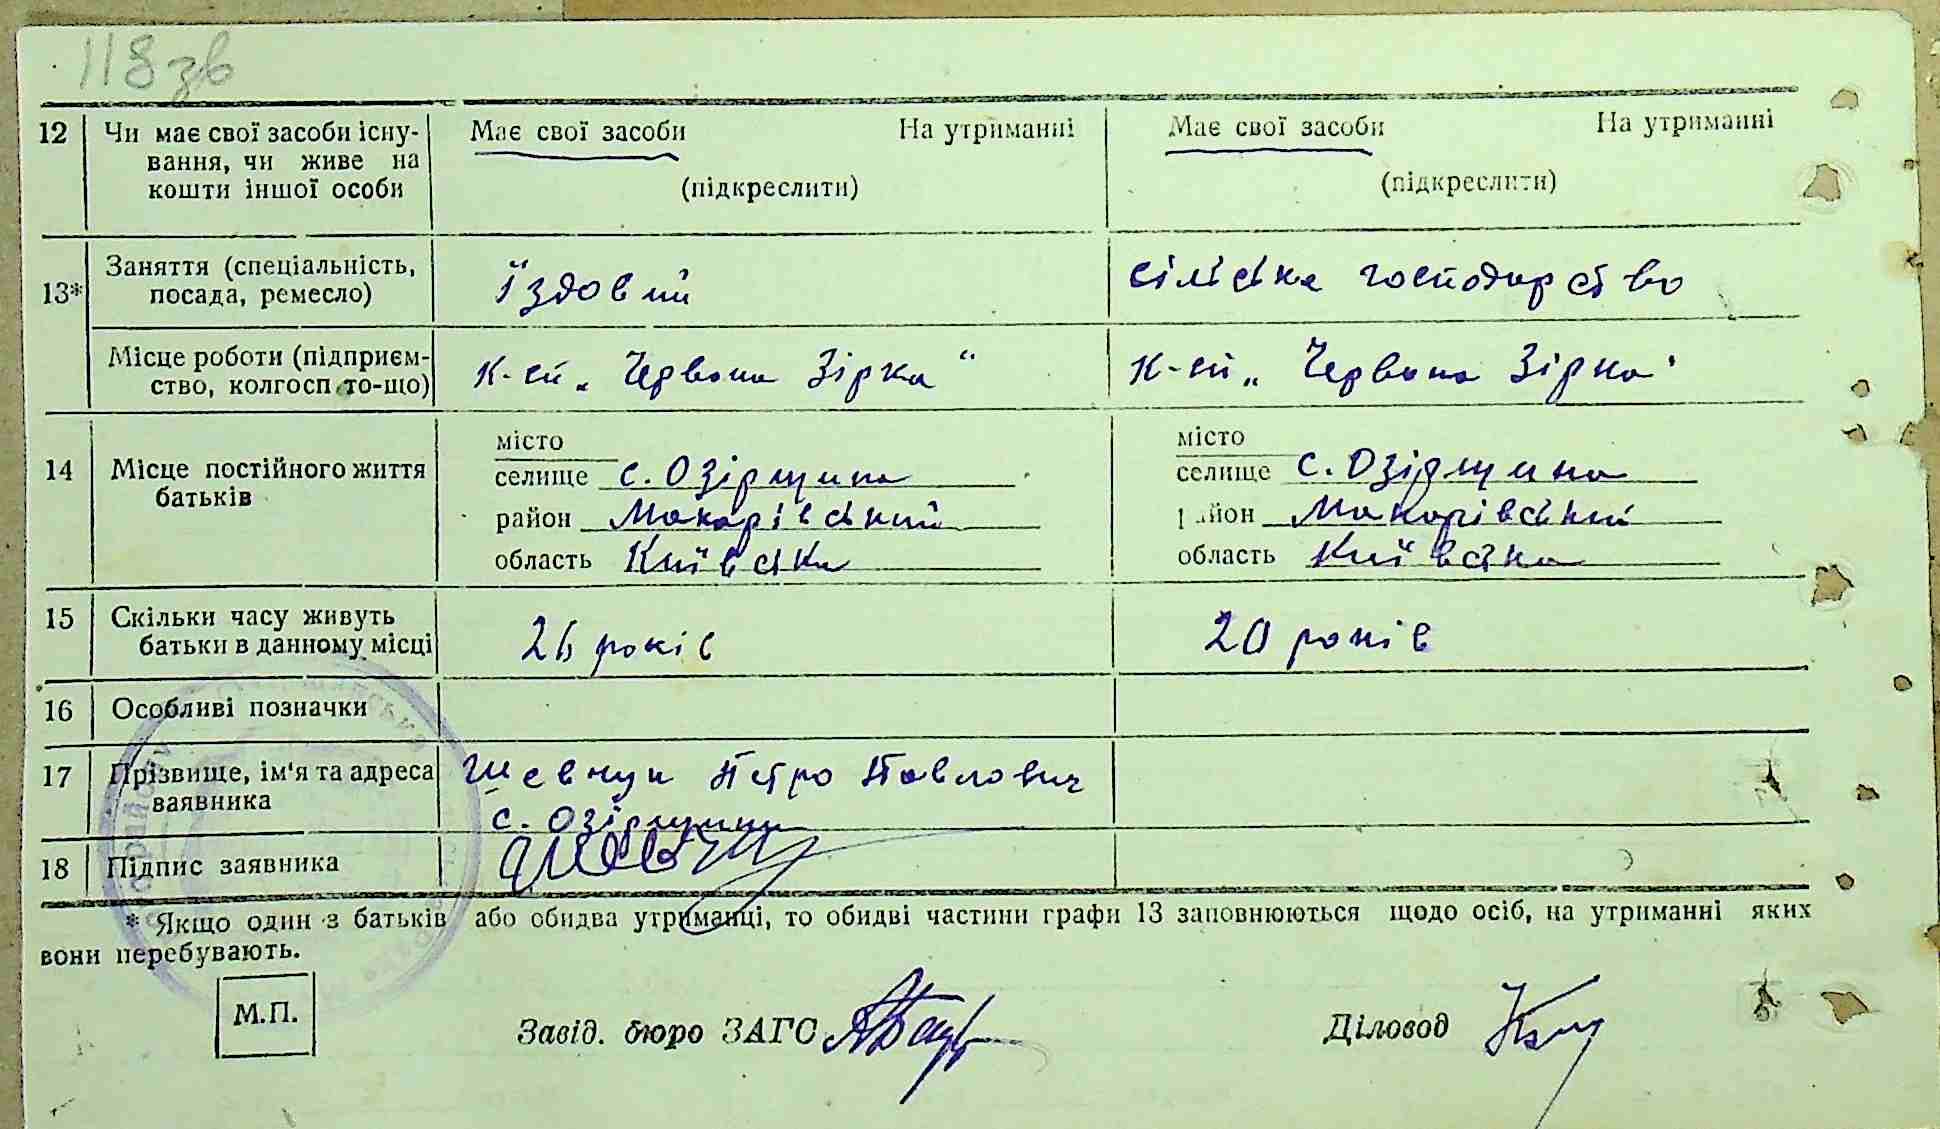 118 зв
12 Чи має свої засоби існу- Має свої засоби На утриманні Має свої засоби На утриманні
вання, чи живе на
кошти іншої особи (підкреслити) (підкреслити)
13* Заняття (спеціальність, їздовий сільське господарство
посада, ремесло)
Місце роботи (підприєм- К-сп „Червона Зірка“ К-сп „Червона Зірка“
ство, колгосп то-що)
місто місто
14 Місце постійного життя селище с. Озірщина селище с. Озірщина
батьків район Макарівський район Макарівський
область Київська область Київська
15 Скільки часу живуть 26 років 20 років
батьки в данному місці
16 Особливі позначки
17 Прізвище, ім'я та адреса Петро Павлович
заявника с. Озірщина
18 Підпис заявника
* Якщо один з батьків або обидва утриманці, то обидві частини графи 13 заповнюються щодо осіб, на утриманні яких
вони перебувають.
М.П. Завід. бюро ЗАГС Діловод